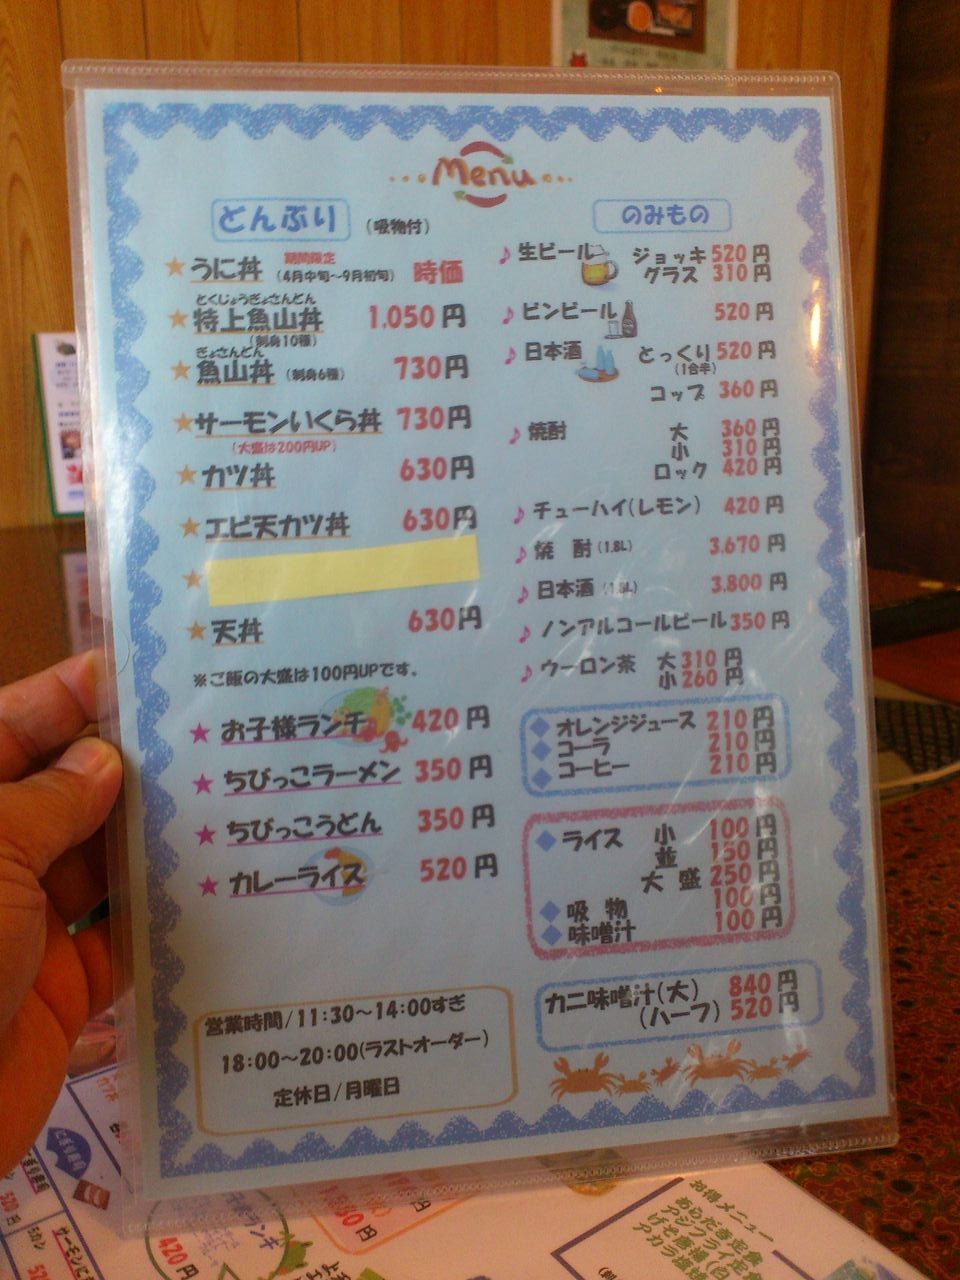 Menu
どんぶり (吸物付)
★うに丼 期間限定 (4月中旬～9月初旬) 時価
とくじょうぎょさんどん
★特上魚山丼 1.050円
(刺身10種)
ぎょさんどん
★魚山丼 (刺身6種) 730円
★サーモンいくら丼 730円
(大盛は200円UP)
★カツ丼 630円
★エビ天カツ丼 630円
★
★天丼 630円
※ご飯の大盛は100円UPです。
★お子様ランチ 420円
★ちびっこラーメン 350円
★ちびっこうどん 350円
★カレーライス 520円
営業時間/11:30～14:00すぎ
18:00～20:00(ラストオーダー)
定休日/月曜日
のみもの
♪生ビール ジョッキ 520円
グラス 310円
♪ビンビール 520円
♪日本酒 とっくり 520円
(1合半)
コップ 360円
♪焼酎 大 360円
小 310円
ロック 420円
♪チューハイ(レモン) 420円
♪焼酎(1.8L) 3.670円
♪日本酒(1.8L) 3.800円
♪ノンアルコールビール 350円
♪ウーロン茶 大 310円
小 260円
◆オレンジジュース 210円
◆コーラ 210円
◆コーヒー 210円
◆ライス 小 100円
並 150円
大盛 250円
◆吸物 100円
◆味噌汁 100円
カニ味噌汁(大) 840円
(ハーフ) 520円
お得メニュー
520円
420円